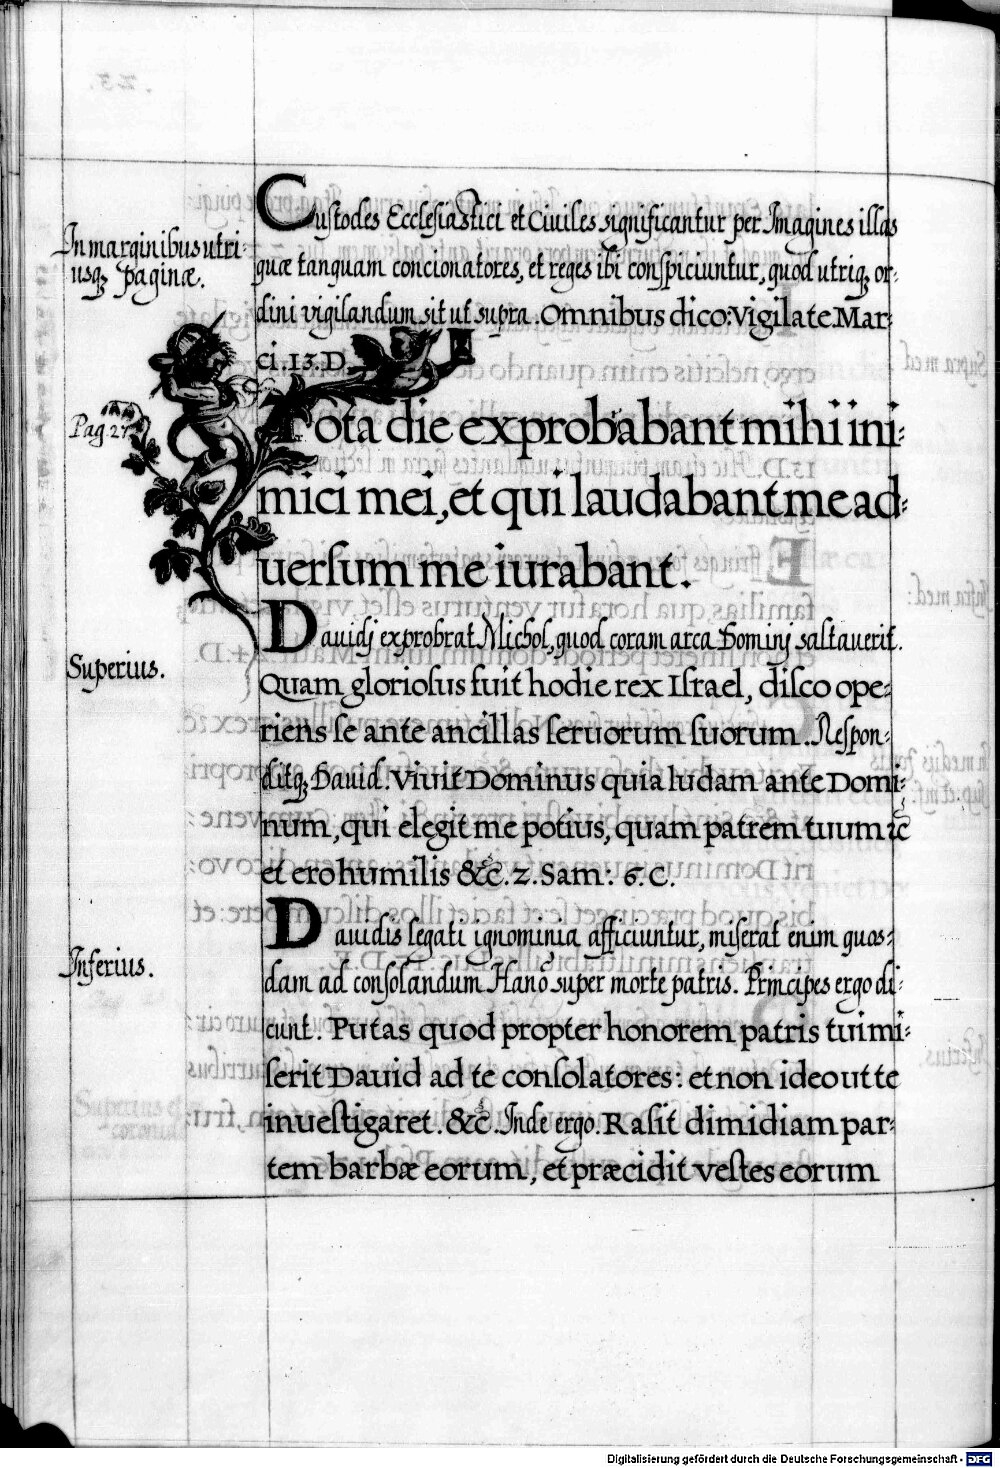 Custodes Ecclesiastici et Ciuiles significantur per Imagines illas
In marginibus utri-
usq; paginæ.
quæ tanquam concionatores, et reges ibi conspiciuntur, quod utriq; or-
dini vigilandum sit ut supra. Omnibus dico: Vigilate. Mar-
ci. 13. D.
Pag. 27
Tota die exprobabant mihi ini-
mici mei, et qui laudabant me ad-
uersum me iurabant.
Dauidj exprobrat Michol, quod coram arca Dominj saltauerit.
Superius.
Quam gloriosus fuit hodie rex Israel, disco ope-
riens se ante ancillas seruorum suorum. Respon-
ditq; Dauid. Viuit Dominus quia ludam ante Domi-
num, qui elegit me potius, quam patrem tuum &c
et ero humilis &c. 2. Sam: 6. C.
Dauidis legati ignominia afficiuntur, miserat enim quos-
Inferius.
dam ad consolandum Hanõ super morte patris. Principes ergo di-
cunt. Putas quod propter honorem patris tui mi-
serit Dauid ad te consolatores: et non ideo ut te
inuestigaret. &c. Inde ergo. Rasit dimidiam par-
tem barbæ eorum, et præcidit vestes eorum
Digitalisierung gefördert durch die Deutsche Forschungsgemeinschaft - DFG